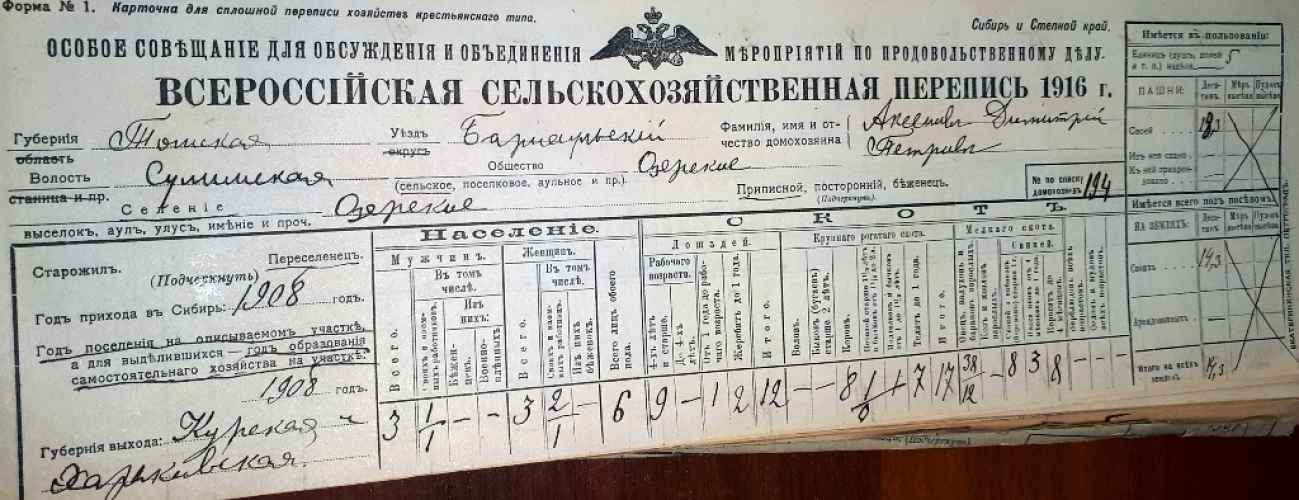 Форма № 1. Карточка для сплошной переписи хозяйствъ крестьянскаго типа.
Сибирь и Степной край.
ОСОБОЕ СОВѢЩАНІЕ ДЛЯ ОБСУЖДЕНІЯ И ОБЪЕДИНЕНІЯ МѢРОПРІЯТІЙ ПО ПРОДОВОЛЬСТВЕННОМУ ДѢЛУ.
ВСЕРОССІЙСКАЯ СЕЛЬСКОХОЗЯЙСТВЕННАЯ ПЕРЕПИСЬ 1916 г.
Губернія Томская Уѣздъ Барнаульскій Фамилія, имя и от-
область округъ чество домохозяина Димитрій
Петровъ
Волость Общество Озерское
станица и пр. (сельское, поселковое, аульное и пр.) Приписной, посторонній, бѣженецъ.
(Подчеркнуть).
№ по списку
домохозяевъ 194
Селеніе Озерское
выселокъ, аулъ, улусъ, имѣніе и проч.
Старожилъ. Переселенецъ.
(Подчеркнуть)
Годъ прихода въ Сибирь: 1908 годъ.
Годъ поселенія на описываемомъ участкѣ,
а для выдѣлившихся — годъ образованія
самостоятельнаго хозяйства на участкѣ.
1908 годъ.
Губернія выхода: Курская
Харьковская.
Населеніе.
Мужчинъ. Женщинъ.
Въ томъ числѣ. Въ томъ числѣ.
Изъ нихъ:
Всего.
Бѣжен-
цевъ.
Военно-
плѣнныхъ.
Всего.
Изъ нихъ
бѣженокъ.
Всего лицъ обоего
пола.
СКОТЪ.
Лошадей. Крупнаго рогатаго скота. Мелкаго скота.
Рабочаго
возраста.
4-хъ лѣтъ
и старше.
До 4-хъ
лѣтъ.
От 1 года до рабо-
чаго возраста.
Жеребятъ до 1 года.
Итого.
Воловъ.
Быковъ (бугаевъ)
старше 2 лѣтъ.
Коровъ.
Телятъ до 1 года.
Итого.
Свиней.
3 1/1 - - 3 2/1 6 9 - 1 2 12 - - 8 7 17 38/12 - 8 3 8 - - -
Имѣется въ пользованіи:
Единицъ (душъ, долей
и т. п.) надѣла 5
ПАШНИ: Деся-
тинъ. Мѣръ
высѣва. Пудовъ
высѣва.
Своей 18,3
Изъ нея сдано
Къ ней приарен-
довано
Имѣется всего подъ посѣвомъ
НА ЗЕМЛЯХЪ: Деся-
тинъ. Мѣръ
высѣва. Пудовъ
высѣва.
Своихъ 14,3
Арендованныхъ
Итого на всѣхъ
земляхъ 14,3